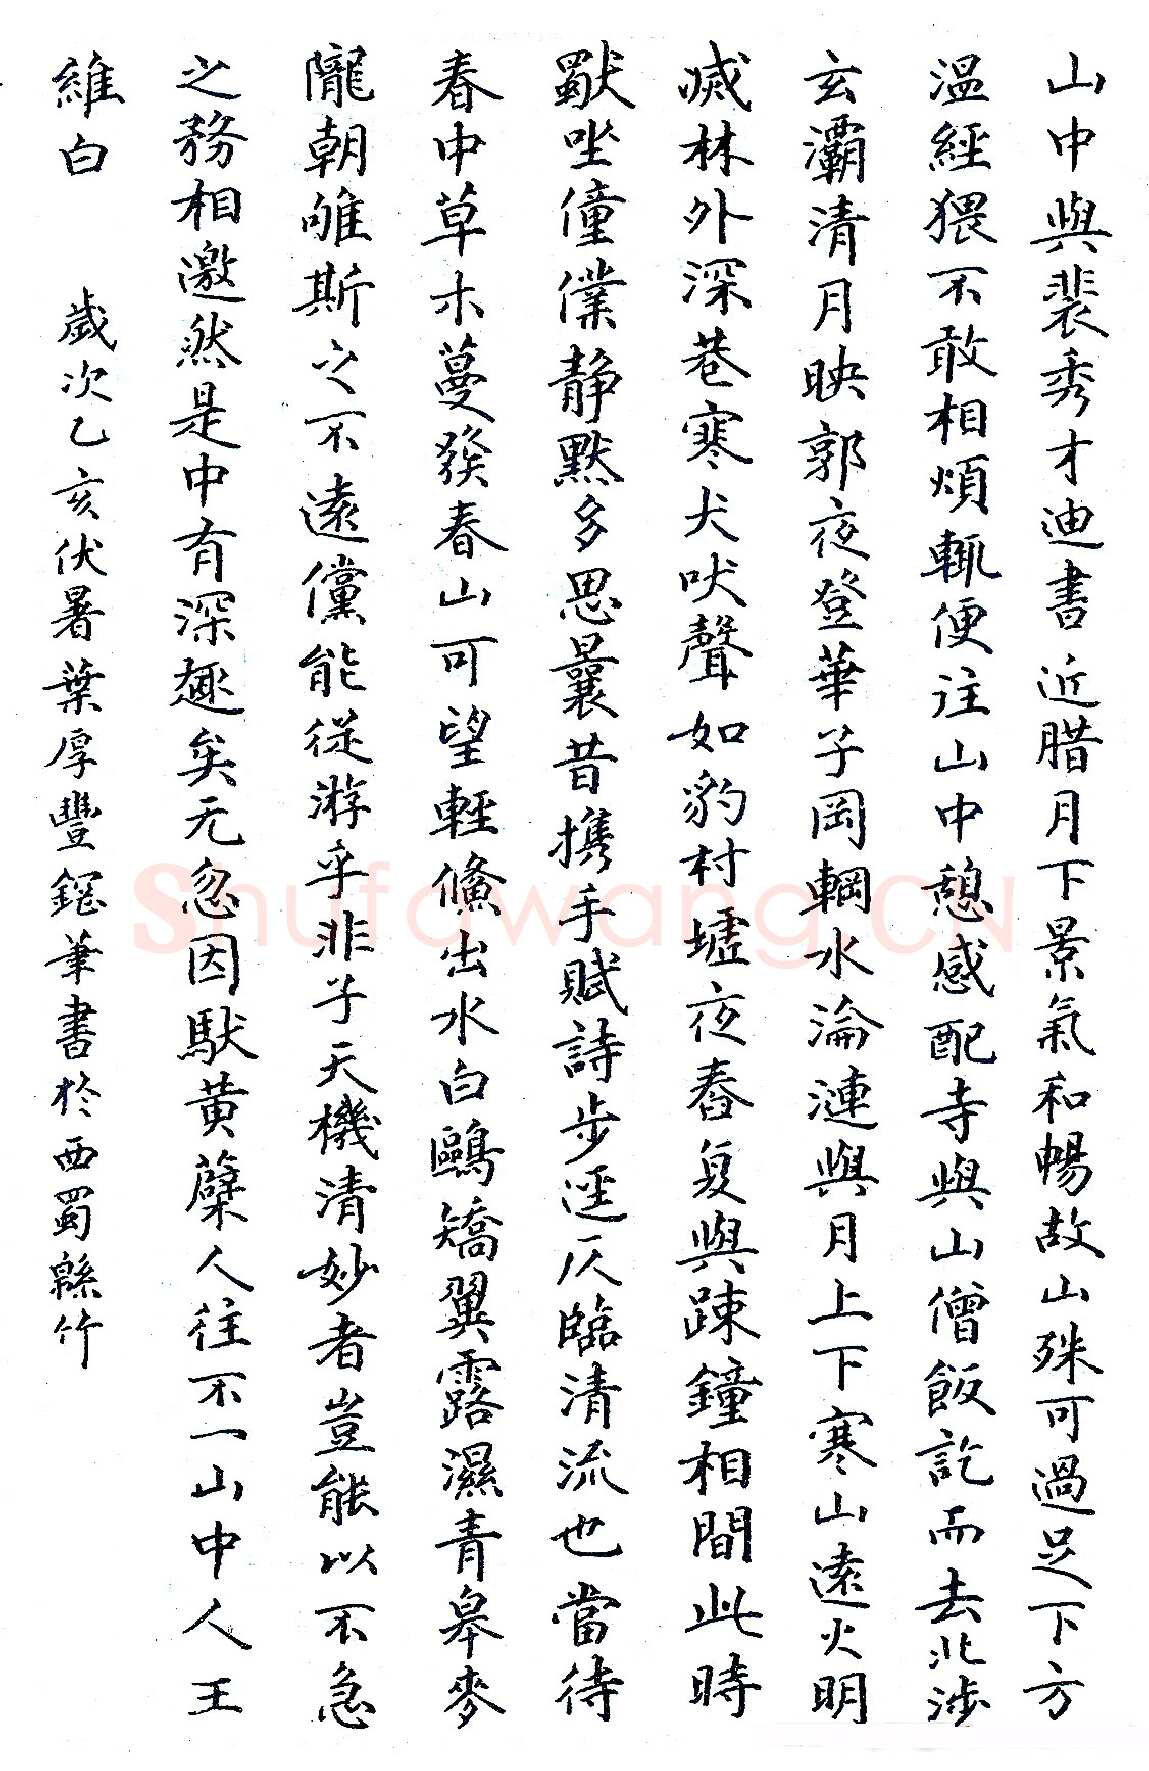 山中與裴秀才迪書 近腊月下景氣和暢故山殊可過足下方
温經猥不敢相煩輒便往山中憩感配寺與山僧飯訖而去北涉
玄灞清月映郭夜登華子岡輞水淪漣與月上下寒山遠火明
滅林外深巷寒犬吠聲如豹村墟夜舂复與踈鐘相間此時
獨坐僮僕静默多思曩昔携手賦詩步逕仄臨清流也當待
春中草木蔓發春山可望輕鯈出水白鷗矯翼露濕青皋麥
隴朝雊斯之不遠儻能從游乎非子天機清妙者豈能以不急
之務相邀然是中有深趣矣无忽因馱黄蘗人往不一山中人王
維白 歲次乙亥伏暑葉厚豐鋼筆書於西蜀緜竹
Shufawang.CN